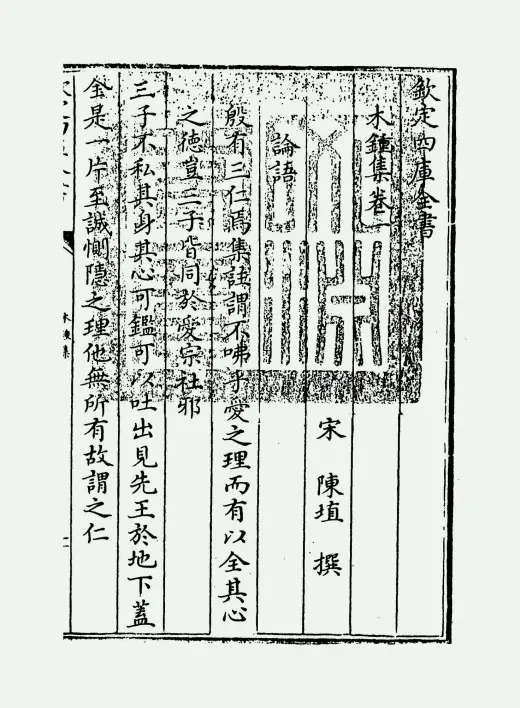 欽定四庫全書
木鍾集卷一
宋 陳埴 撰
論語
殷有三仁焉集註謂不咈乎愛之理而有以全其心
之徳豈三子皆同於愛宗社耶
三子不私其身其心可鑑可以吐出見先王於地下蓋
全是一片至誠惻隱之理他無所有故謂之仁
木鍾集